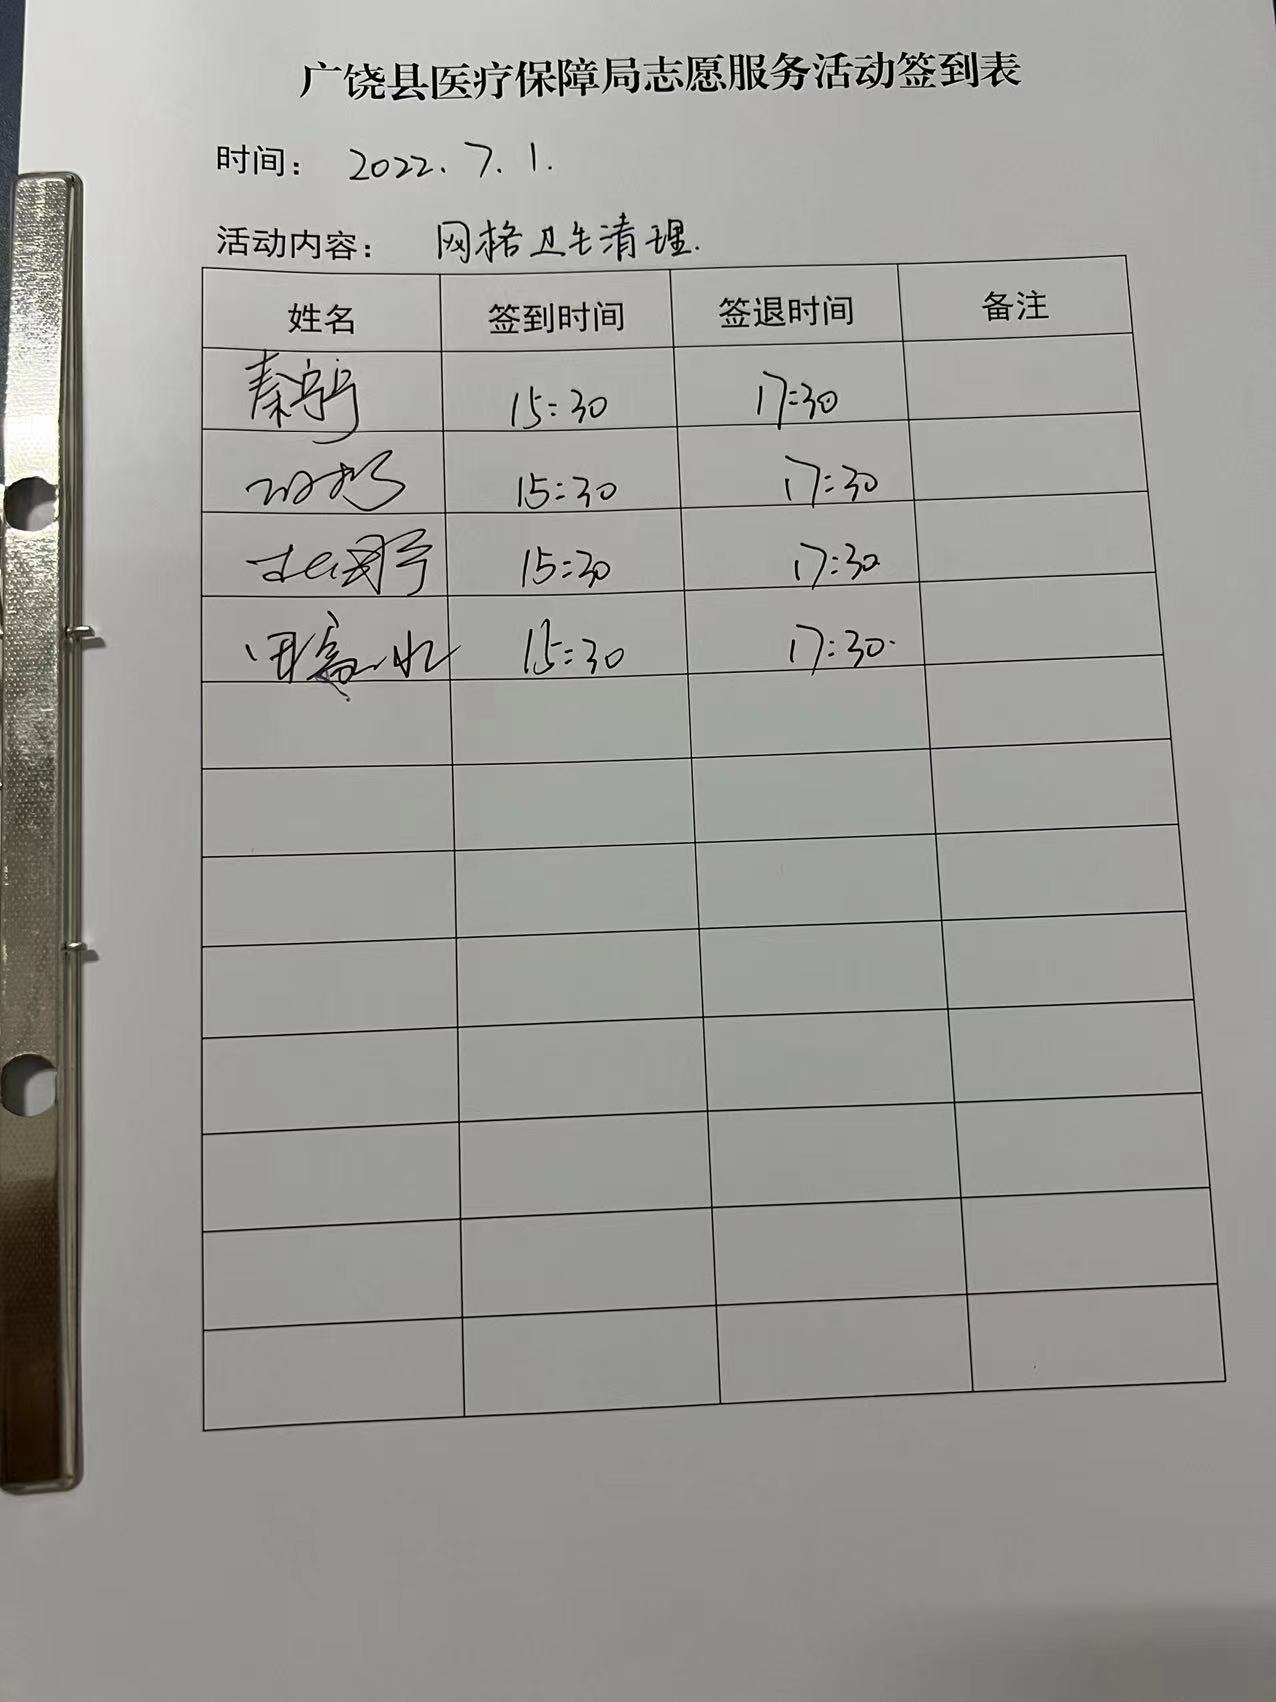 广饶县医疗保障局志愿服务活动签到表
时间： 2022.7.1.
活动内容： 网格卫生清理.
姓名 签到时间 签退时间 备注
秦 15:30 17:30
15:30 17:30
15:30 17:30
15:30 17:30